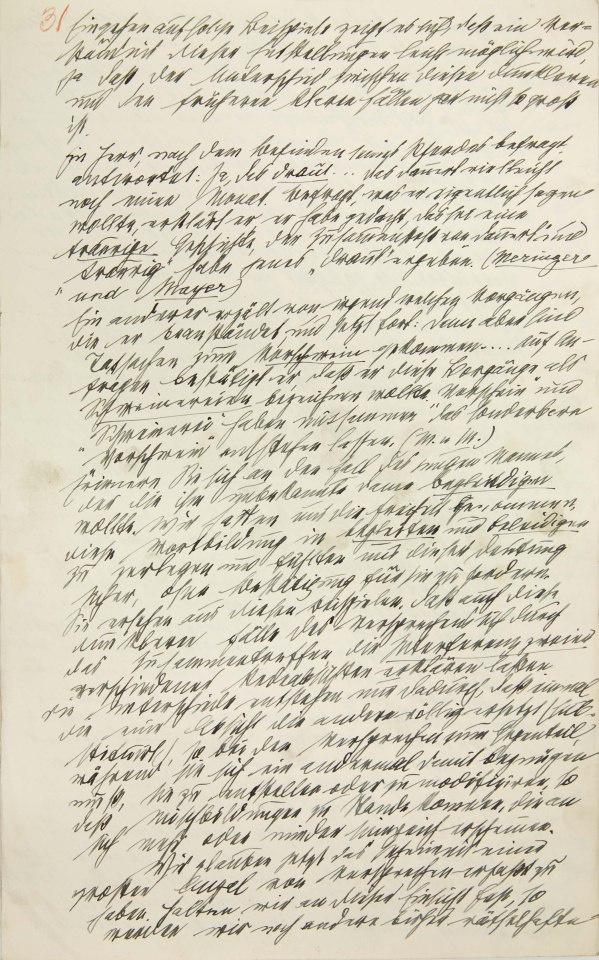 31
Eingehen auf solche Beispiele zeigt es sich, daß ein Ver-
ständnis dieser Entstellungen leicht möglich wird,
ja daß der Unterschied zwischen diesen dunkleren
und den früheren klaren Fällen gar nicht so groß
ist.
Ein Herr, nach dem Befinden seines Pferdes befragt,
antwortet: Ja, das draut... das dauert vielleicht
noch einen Monat. Befragt, was er eigentlich sagen
wollte, erklärt er, er habe gedacht, das sei eine
traurige Geschichte, der Zusammenstoß von „dauert" und
„traurig" habe jenes „draut" ergeben. (Meringer
und Mayer)
Ein anderer erzählt von irgend welchen Vorgängen,
die er beanständet und setzt fort: Dann aber sind
Tatsachen zum Vorschwein gekommen.... Auf An-
fragen bestätigt er, daß er diese Vorgänge als
Schweinereien bezeichnen wollte. „Vorschein" und
„Schweinerei" haben mitsammen das sonderbare
„Vorschwein" entstehen lassen. (M. u M.)
Erinnern Sie sich an den Fall des jungen Mannes,
der die ihm unbekannte Dame begleidigen
wollte. Wir hatten uns die Freiheit genommen,
diese Wortbildung in begleiten und beleidigen
zu zerlegen und fühlten uns dieser Deutung
sicher, ohne Bestätigung für sie zu fordern.
Sie ersehen aus diesen Beispielen, daß auch diese
dunkleren Fälle des Versprechens sich durch
das Zusammentreffen, die Interferenz zweier
verschiedener Redeabsichten erklären lassen
die Unterschiede entstehen nur dadurch, daß einmal
die eine Absicht die andere völlig ersetzt (sub-
stituirt), so bei den Versprechen zum Gegenteil,
während sie sich ein andermal damit begnügen
muß, sie zu entstellen oder zu modifiziren, so
daß Mischbildungen zu Stande kommen, die an
sich mehr oder minder sinnreich erscheinen.
Wir glauben jetzt das Geheimnis einer
großen Anzahl von Versprechen erfaßt zu
haben. Halten wir an dieser Einsicht fest, so
werden wir noch andere bisher rätselhafte